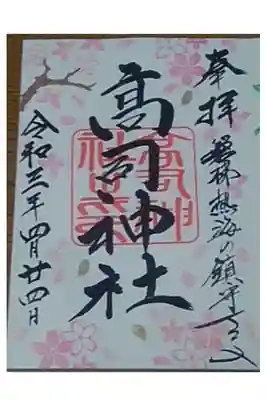 奉拝
磐梯熱海の鎮守
高司神社
令和三年四月廿四日